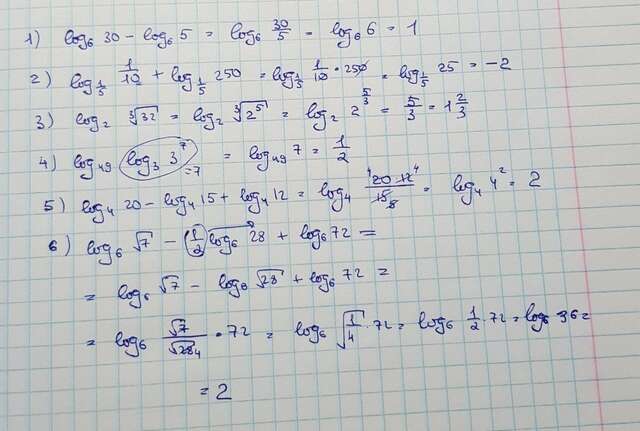 1) log₆ 30 − log₆ 5 = log₆ 30/5 = log₆ 6 = 1
2) log_{1/5} 1/10 + log_{1/5} 250 = log_{1/5} 1/10 · 250 = log_{1/5} 25 = −2
3) log₂ ∛32 = log₂ ∛2⁵ = log₂ 2^{5/3} = 5/3 = 1 2/3
4) log₄₉ log₃ 3⁷ = log₄₉ 7 = 1/2
=7
5) log₄ 20 − log₄ 15 + log₄ 12 = log₄ 20·12/15 = log₄ 4² = 2
6) log₆ √7 − 1/2 log₆ 28 + log₆ 72 =
= log₆ √7 − log₆ √28 + log₆ 72 =
= log₆ √7/√28 · 72 = log₆ √(1/4) · 72 = log₆ 1/2 · 72 = log₆ 36 =
= 2